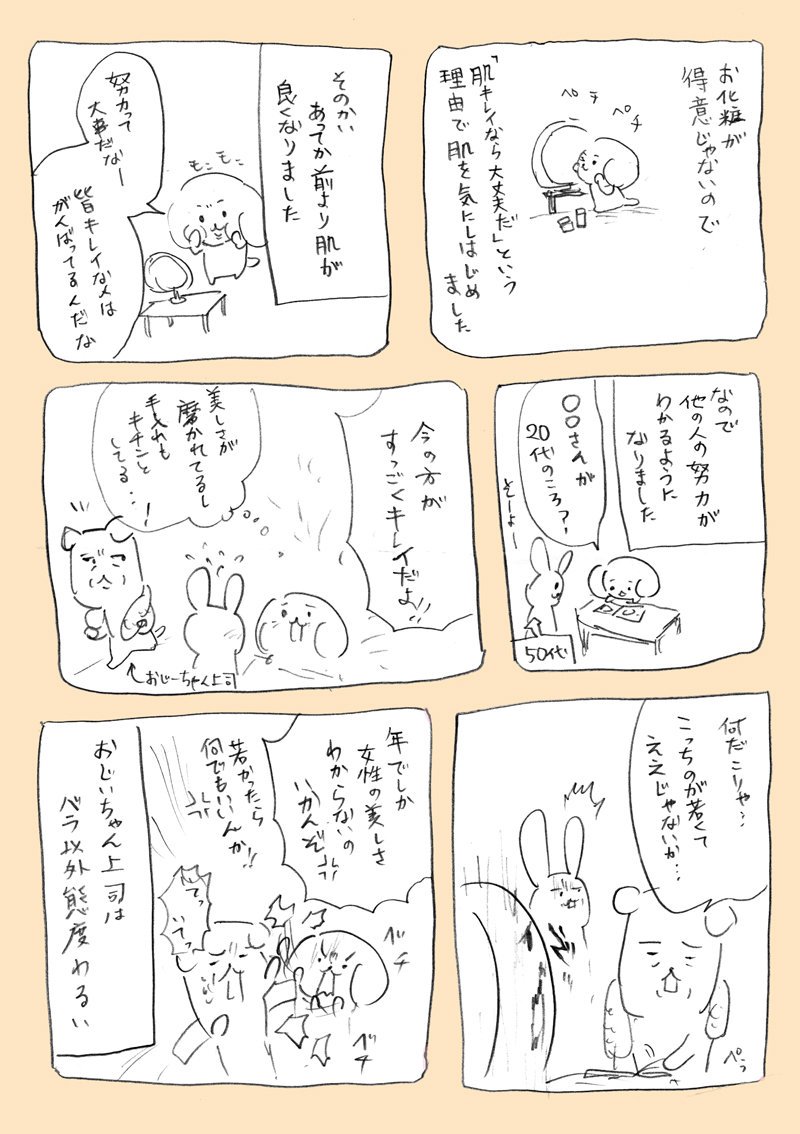 お化粧が
得意じゃないので
ペチ
ペチ
「肌キレイなら大丈夫だ」という
理由で肌を気にしはじめ
ました
そのかい
あってか前より肌が
良くなりました
モニモニ
努力って
大事だなー
皆キレイな人は
がんばってるんだな
なので
他の人の努力が
わかるように
なりました
○○さんが
20代のころ?
そーよー
50代
今の方が
すっごくキレイだよ!!
美しさが
磨かれてるし
手入れも
キチンと
してる…!
おじーちゃん上司
何だこりゃ…
こっちのが若くて
ええじゃないか…
ペラ
年でしか
女性の美しさ
わからないの
いかんぞ
若かったら
何でもいいんか!!
いてっ
いてっ
ベチ
ベチ
おじいちゃん上司は
バラ以外態度わるい